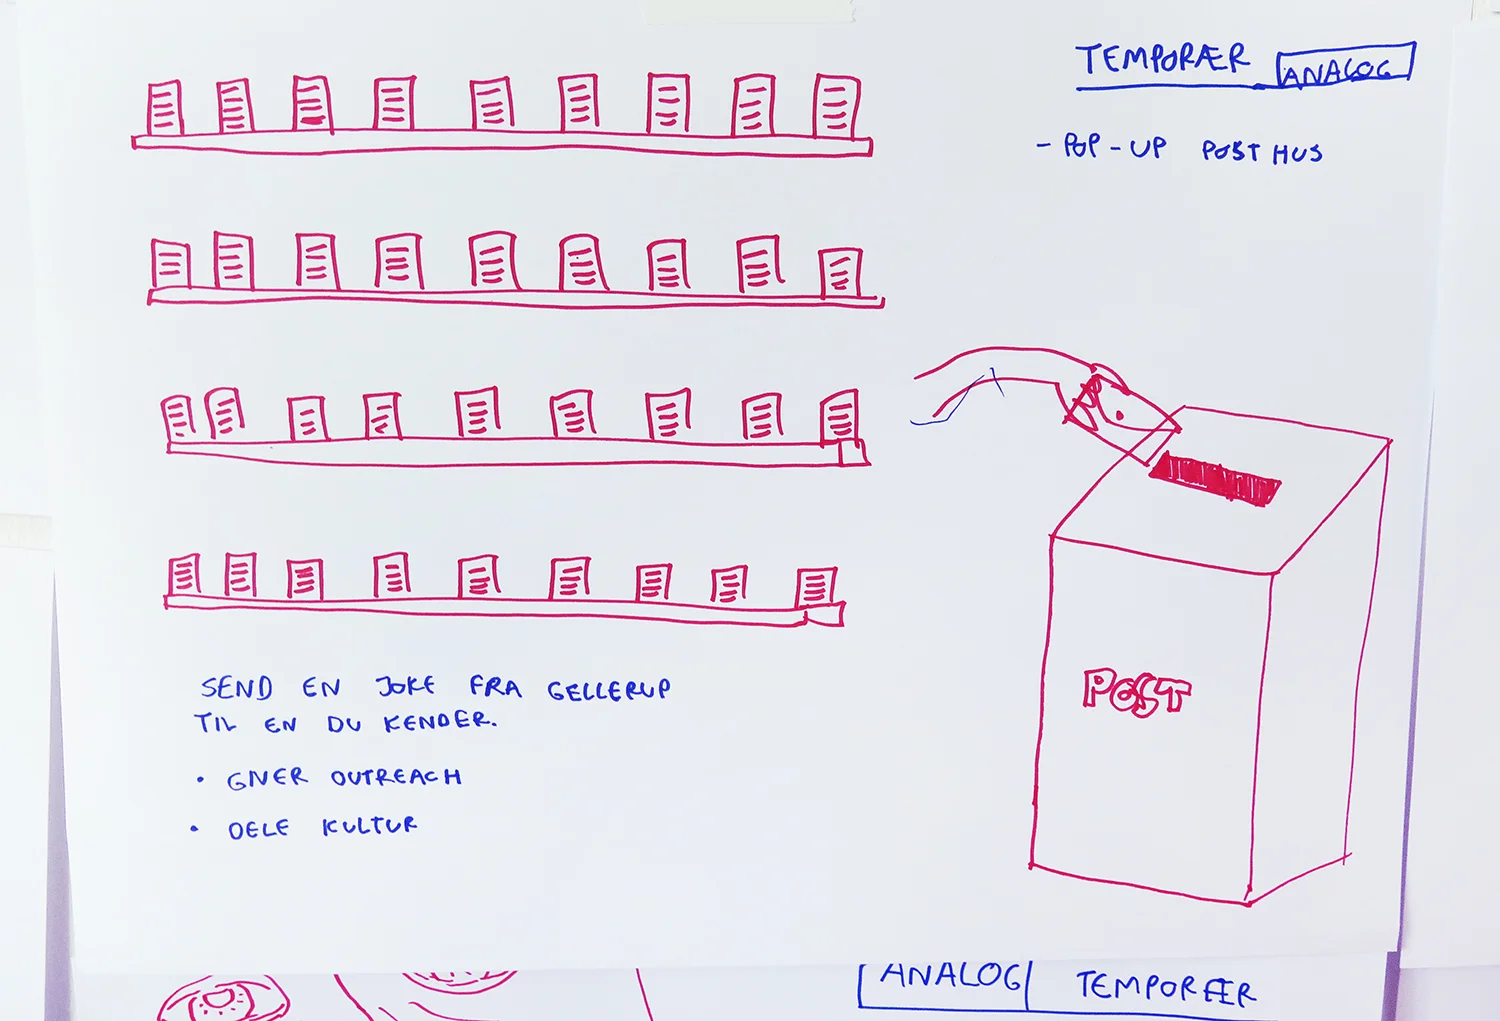 TEMPORÆR ANALOG
- POP-UP POST HUS
SEND EN JOKE FRA GELLERUP
TIL EN DU KENDER.
• GIVER OUTREACH
• DELE KULTUR
POST
ANALOG TEMPORÆR